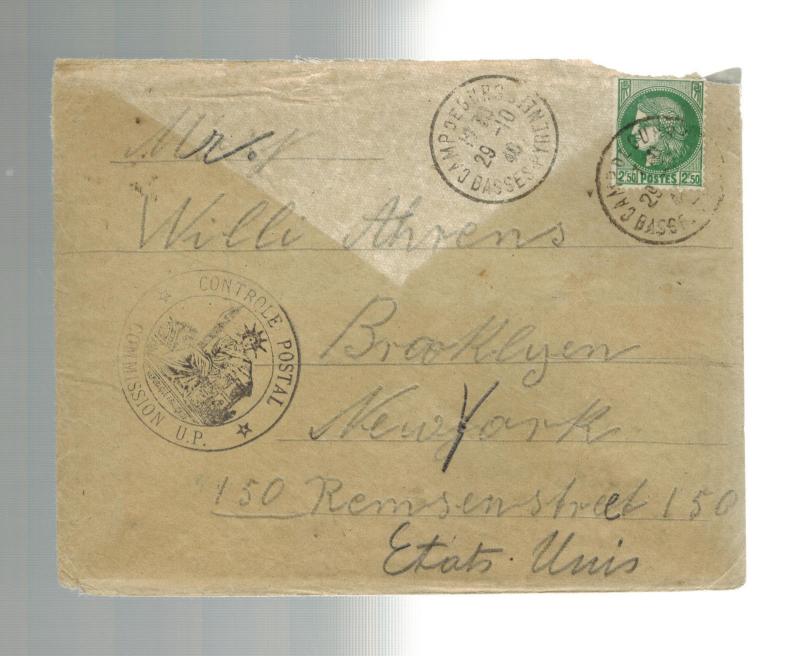 Mr.
Willi Ahrens
Brooklyen
New York
150 Remsenstreet 150
Etats-Unis
CAMP DE GURS BASSES-PYRENEES
29 -10
40
2,50 POSTES 2,50
CAMP GURS
BASSES
29
CONTROLE POSTAL
COMMISSION U.P.